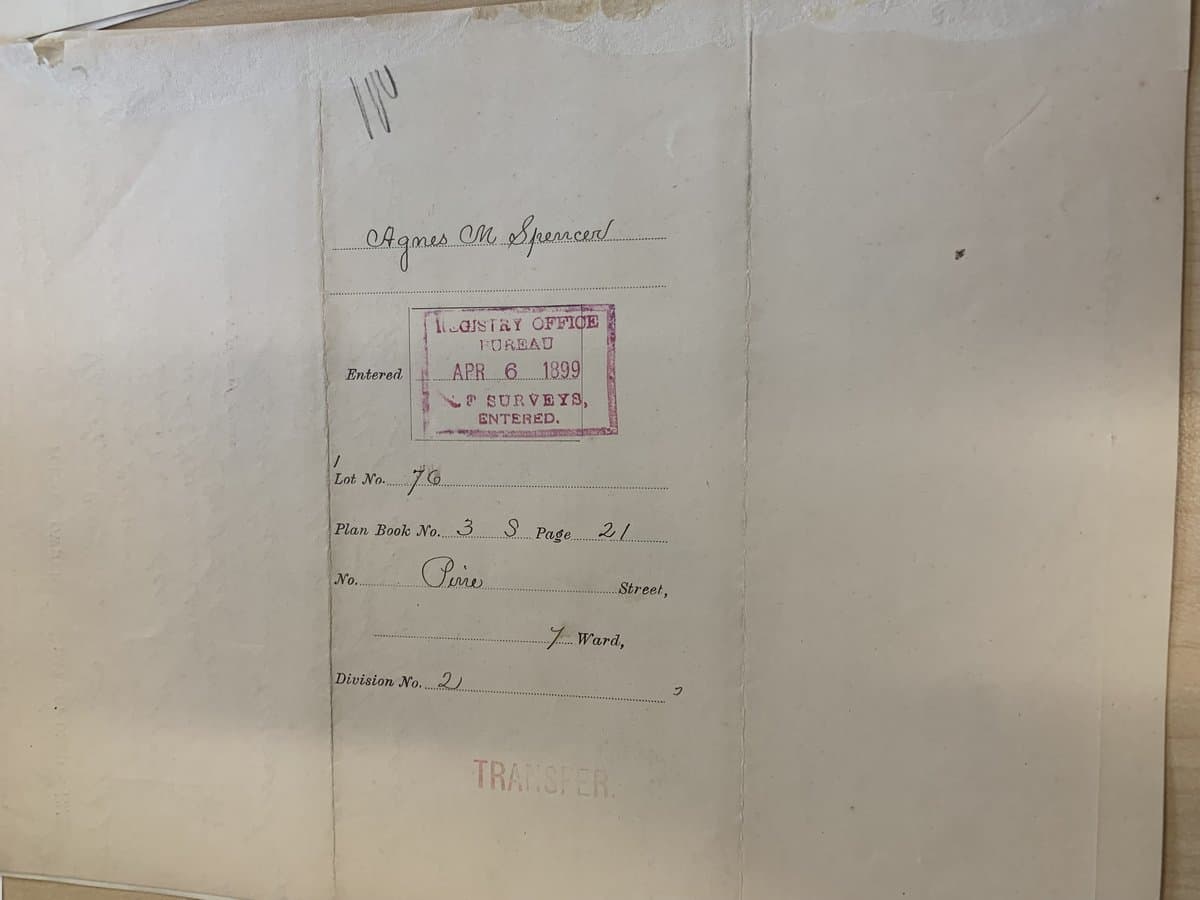 Agnes M Spencer
REGISTRY OFFICE
BUREAU
Entered APR 6 1899
OF SURVEYS,
ENTERED.
Lot No. 76
Plan Book No. 3 S Page 21
No. Pine Street,
7 Ward,
Division No. 2
TRANSFER.